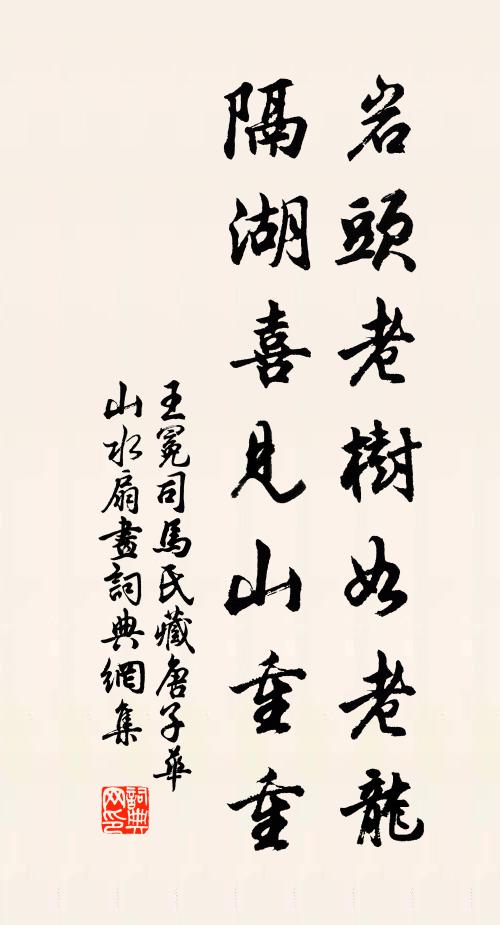 岩頭老樹如老龍
隔湖喜見山重重
王冕司馬氏藏唐子華
山水扇畫詞典網集
詞典
网印